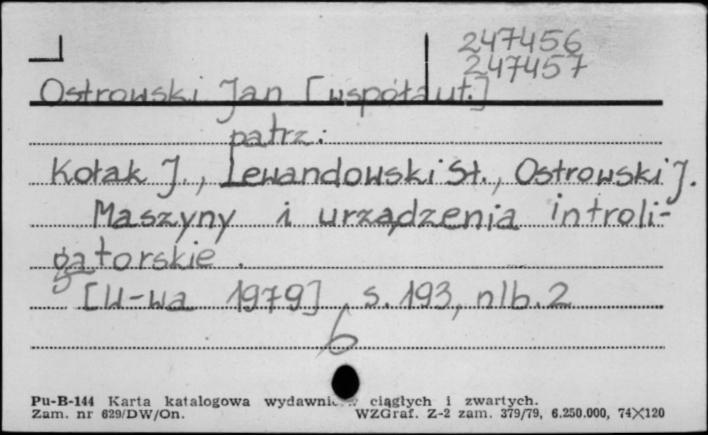 247456
247457
Ostrowski Jan [współaut.]
patrz:
Kołak J., Lewandowski St., Ostrowski J.
Maszyny i urządzenia introli-
gatorskie.
[W-wa 1979], s. 193, nlb. 2
b
Pu-B-144 Karta katalogowa ciągłych i zwartych.
Zam. nr 629/DW/On. WZGraf. Z-2 zam. 379/79, 6.250.000, 74X120